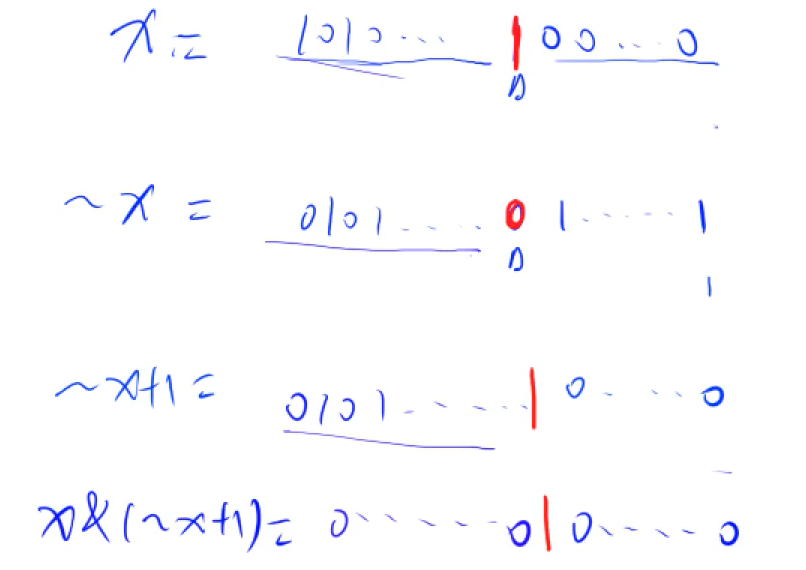 x = 1010... 1 00...0
n
~x = 0101..... 0 1......1
n
1
~x+1= 0101....... 1 0.....0
x&(~x+1)= 0......0 1 0.....0